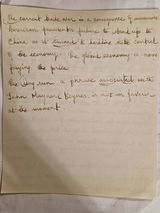 The current trade war is a consequence of successive
American presidents' failure to stand up to
China as it towards a hardline state control
of the economy. The global economy is now
paying the price.
The long run a phrase associated with
John Maynard Keynes, is not in favour
at the moment.